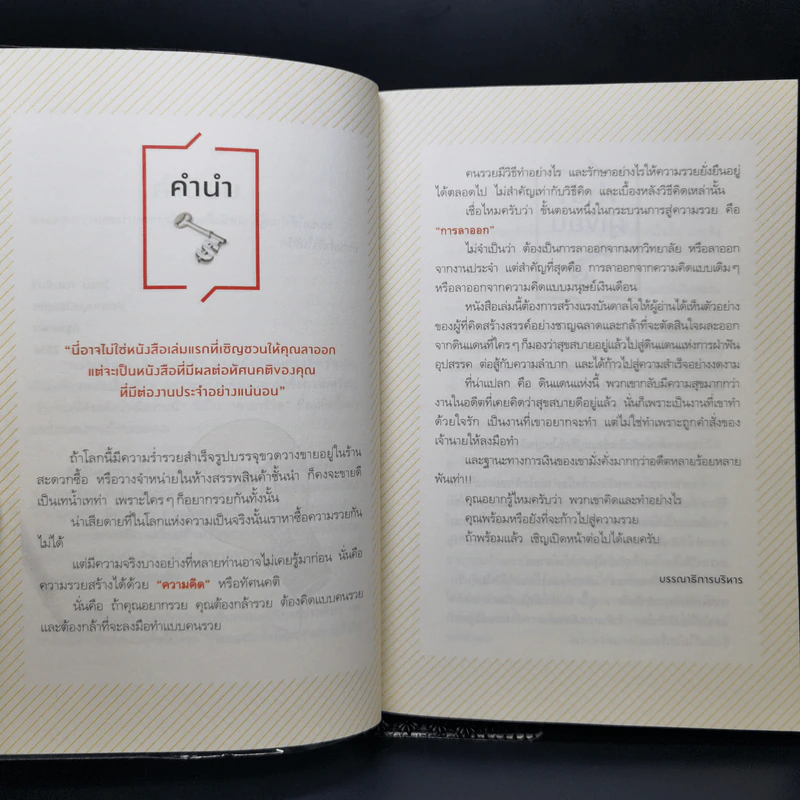 คำนำ
“นี่อาจไม่ใช่หนังสือเล่มแรกที่เชิญชวนให้คุณลาออก
แต่จะเป็นหนังสือที่มีผลต่อทัศนคติของคุณ
ที่มีต่องานประจำอย่างแน่นอน”
ถ้าโลกนี้มีความร่ำรวยสำเร็จรูปบรรจุขวดวางขายอยู่ในร้าน
สะดวกซื้อ หรือวางจำหน่ายในห้างสรรพสินค้าชั้นนำ ก็คงจะขายดี
เป็นเทน้ำเทท่า เพราะใครๆ ก็อยากรวยกันทั้งนั้น
น่าเสียดายที่ในโลกแห่งความเป็นจริงนั้นเราหาซื้อความรวยกัน
ไม่ได้
แต่มีความจริงบางอย่างที่หลายท่านอาจไม่เคยรู้มาก่อน นั่นคือ
ความรวยสร้างได้ด้วย “ความคิด” หรือทัศนคติ
นั่นคือ ถ้าคุณอยากรวย คุณต้องกล้ารวย ต้องคิดแบบคนรวย
และต้องกล้าที่จะลงมือทำแบบคนรวย
คนรวยมีวิธีทำอย่างไร และรักษาอย่างไรให้ความรวยยั่งยืนอยู่
ได้ตลอดไป ไม่สำคัญเท่ากับวิธีคิด และเบื้องหลังวิธีคิดเหล่านั้น
เชื่อไหมครับว่า ขั้นตอนหนึ่งในกระบวนการสู่ความรวย คือ
“การลาออก”
ไม่จำเป็นว่า ต้องเป็นการลาออกจากมหาวิทยาลัย หรือลาออก
จากงานประจำ แต่สำคัญที่สุดคือ การลาออกจากความคิดแบบเดิมๆ
หรือลาออกจากความคิดแบบมนุษย์เงินเดือน
หนังสือเล่มนี้ต้องการสร้างแรงบันดาลใจให้ผู้อ่านได้เห็นตัวอย่าง
ของผู้ที่คิดสร้างสรรค์อย่างชาญฉลาดและกล้าที่จะตัดสินใจผละออก
จากดินแดนที่ใครๆ ก็มองว่าสุขสบายอยู่แล้วไปสู่ดินแดนแห่งการฝ่าฟัน
อุปสรรค ต่อสู้กับความลำบาก และได้ก้าวไปสู่ความสำเร็จอย่างงดงาม
ที่น่าแปลก คือ ดินแดนแห่งนี้ พวกเขากลับมีความสุขมากกว่า
งานในอดีตที่เคยคิดว่าสุขสบายดีอยู่แล้ว นั่นก็เพราะเป็นงานที่เขาทำ
ด้วยใจรัก เป็นงานที่เขาอยากจะทำ แต่ไม่ใช่ทำเพราะถูกคำสั่งของ
เจ้านายให้ลงมือทำ
และฐานะทางการเงินของเขามั่งคั่งมากกว่าอดีตหลายร้อยหลาย
พันเท่า!!
คุณอยากรู้ไหมครับว่า พวกเขาคิดและทำอย่างไร
คุณพร้อมหรือยังที่จะก้าวไปสู่ความรวย
ถ้าพร้อมแล้ว เชิญเปิดหน้าต่อไปได้เลยครับ
บรรณาธิการบริหาร